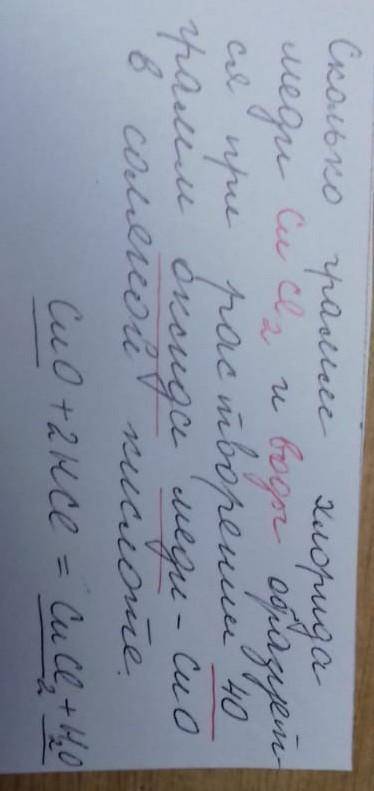 Сколько грамм хлорида
меди CuCl₂ и воды образует-
ся при растворении 40
грамм оксида меди - CuO
в соляной кислоте.
CuO + 2HCl = CuCl₂ + H₂O